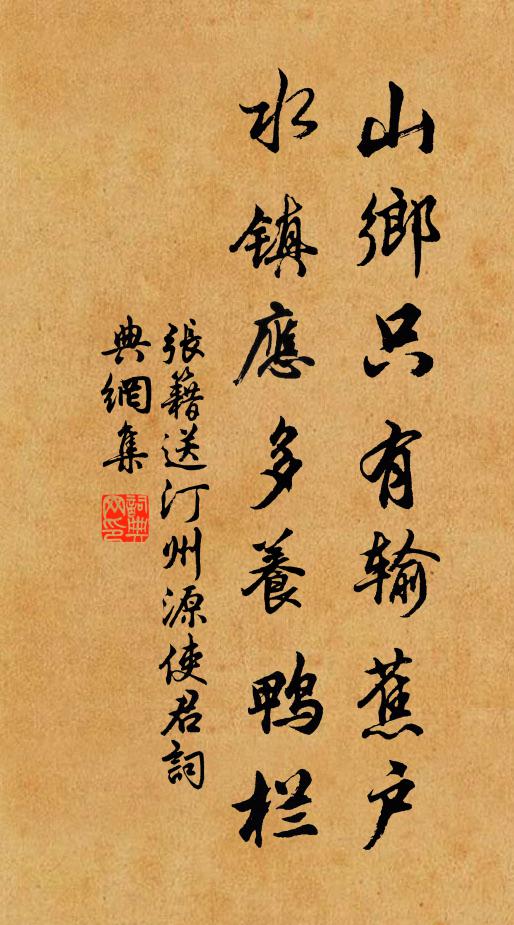 山鄉只有输蕉户
水镇應多養鴨栏
張籍送汀州源使君詞
典網集
詞典網印